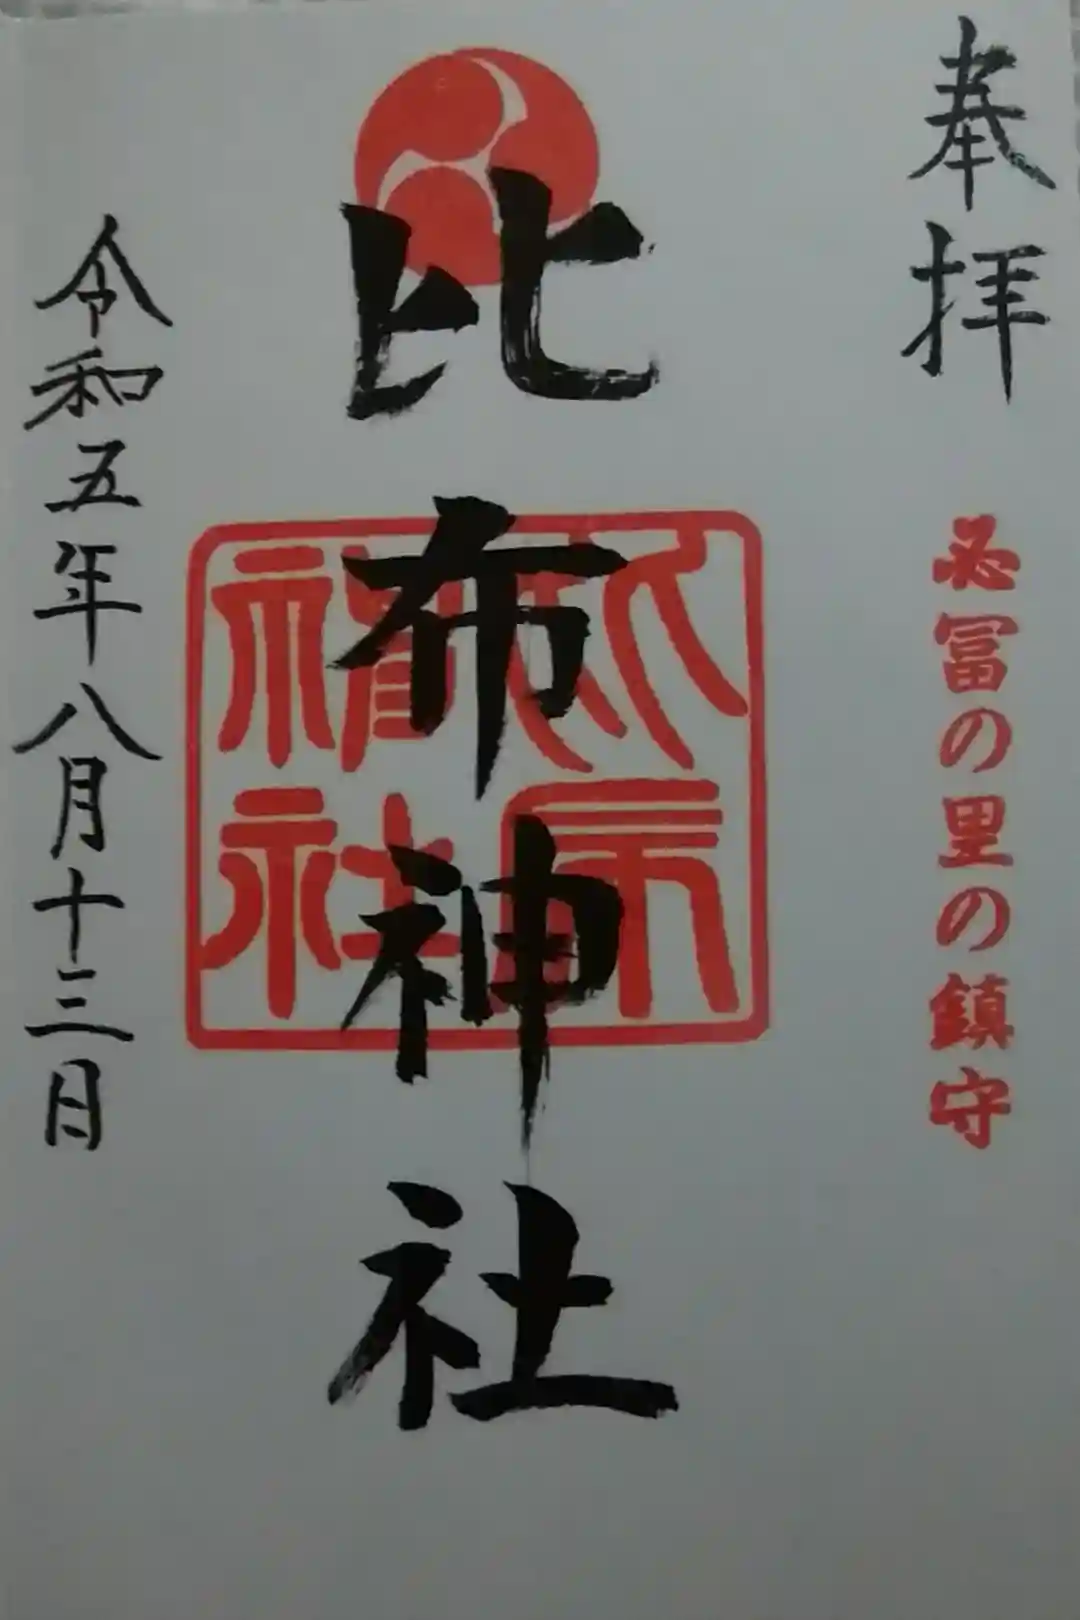 奉拝
必冨の里の鎮守
比布神社
比布神社
令和五年八月十三日